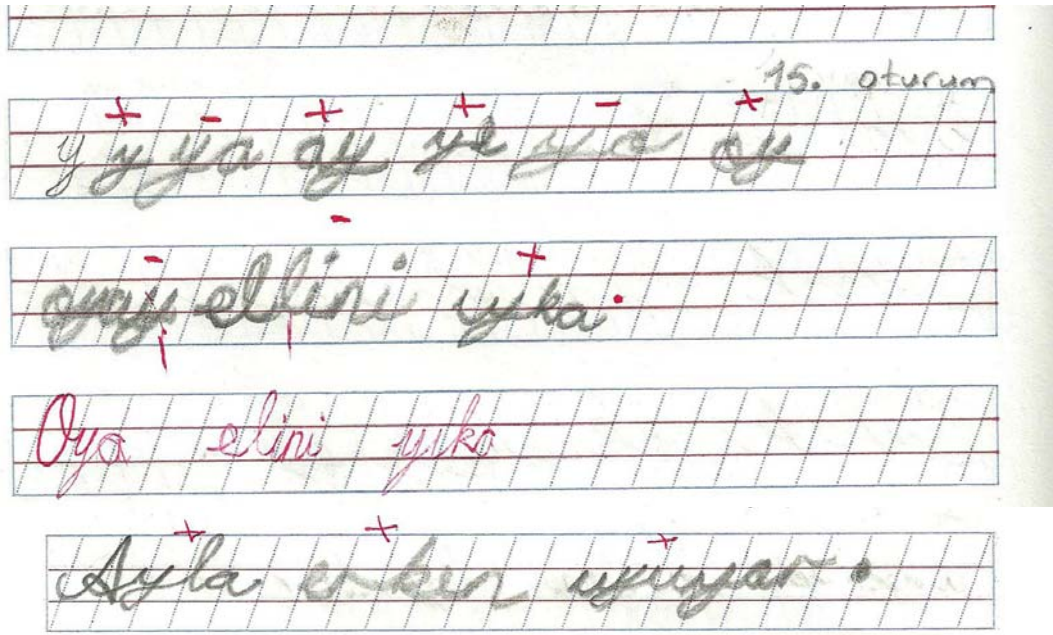 15. oturum
y y ya ay ye ya oy
oyay ellini yıka.
Oya elini yıka
Ayla erken uyuyor.